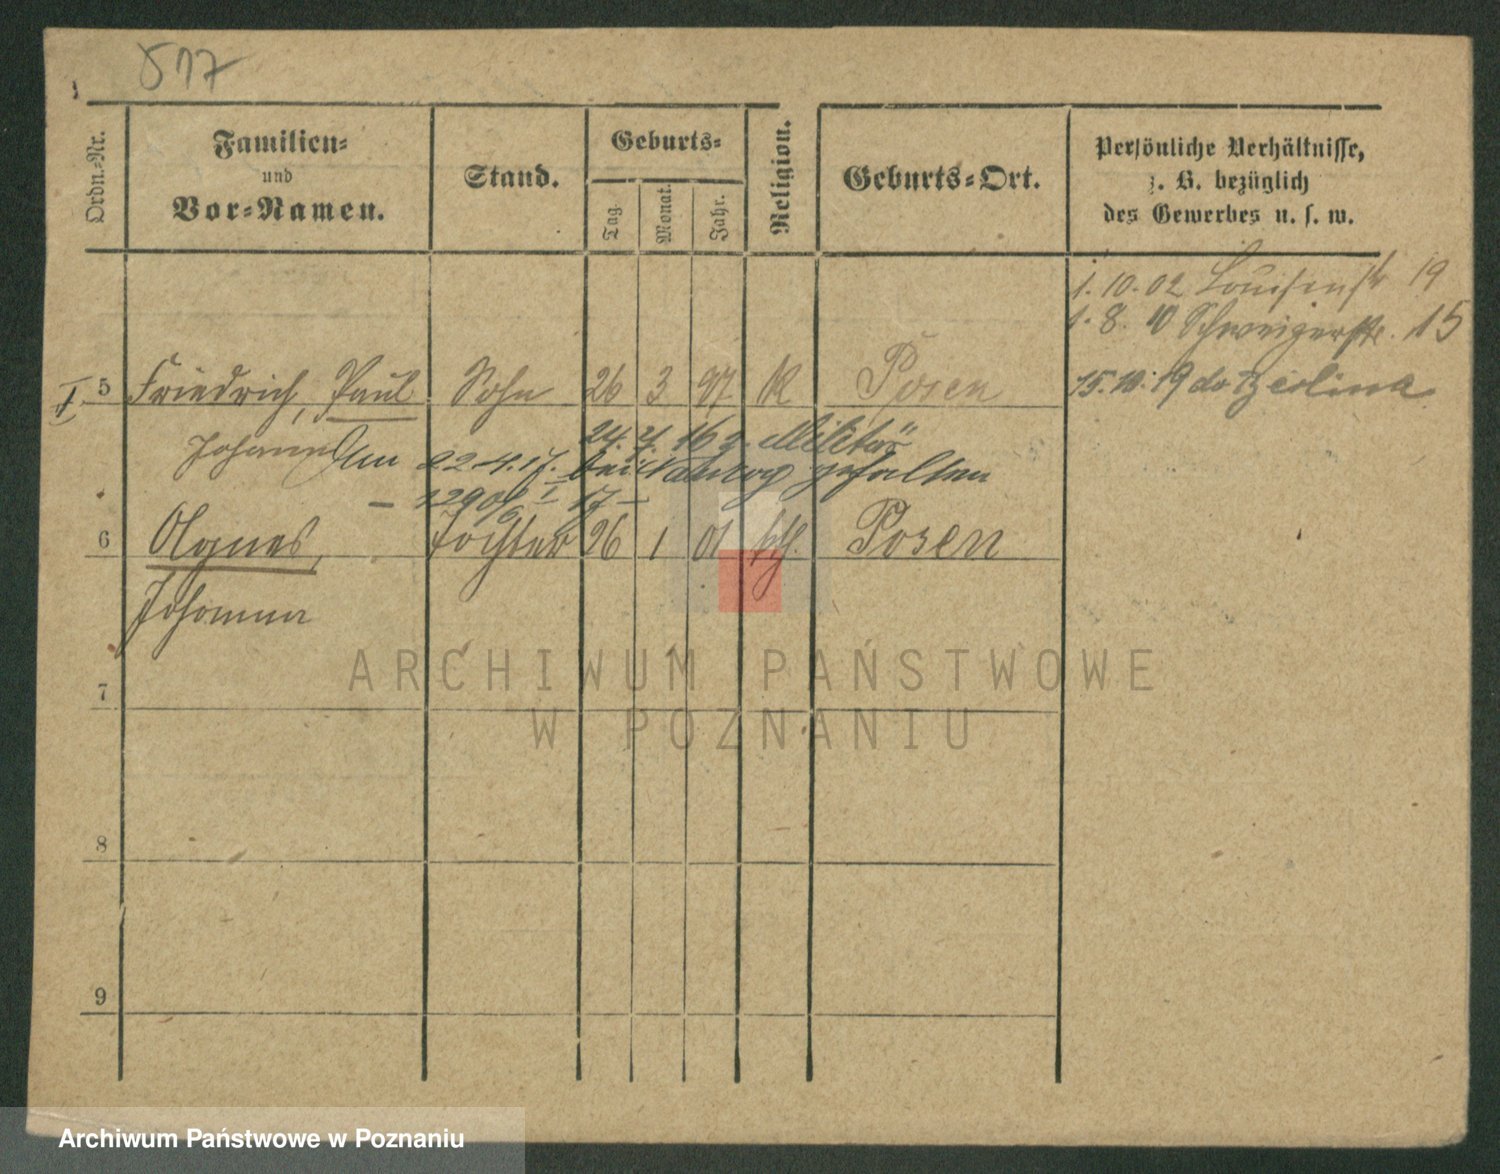 517
Ordn.-Nr.
Familien-
und
Vor-Namen.
Stand.
Geburts-
Tag.
Monat.
Jahr.
Religion.
Geburts-Ort.
Persönliche Verhältnisse,
z. B. bezüglich
des Gewerbes u. s. w.
1. 10. 02 Louisenstr 19
1. 8. 10 Schweizerstr. 15
15. 10. 19 do
I. 5 Friedrich, Paul Sohn 26 3 97 K Posen
24. 7. 16 z. Militär
Johann Am 22. 4. 17. bei gefallen
6 Agnes, Tochter 26 1 01 kth. Posen
Johanna
7
8
9
ARCHIWUM PAŃSTWOWE
W POZNANIU
Archiwum Państwowe w Poznaniu